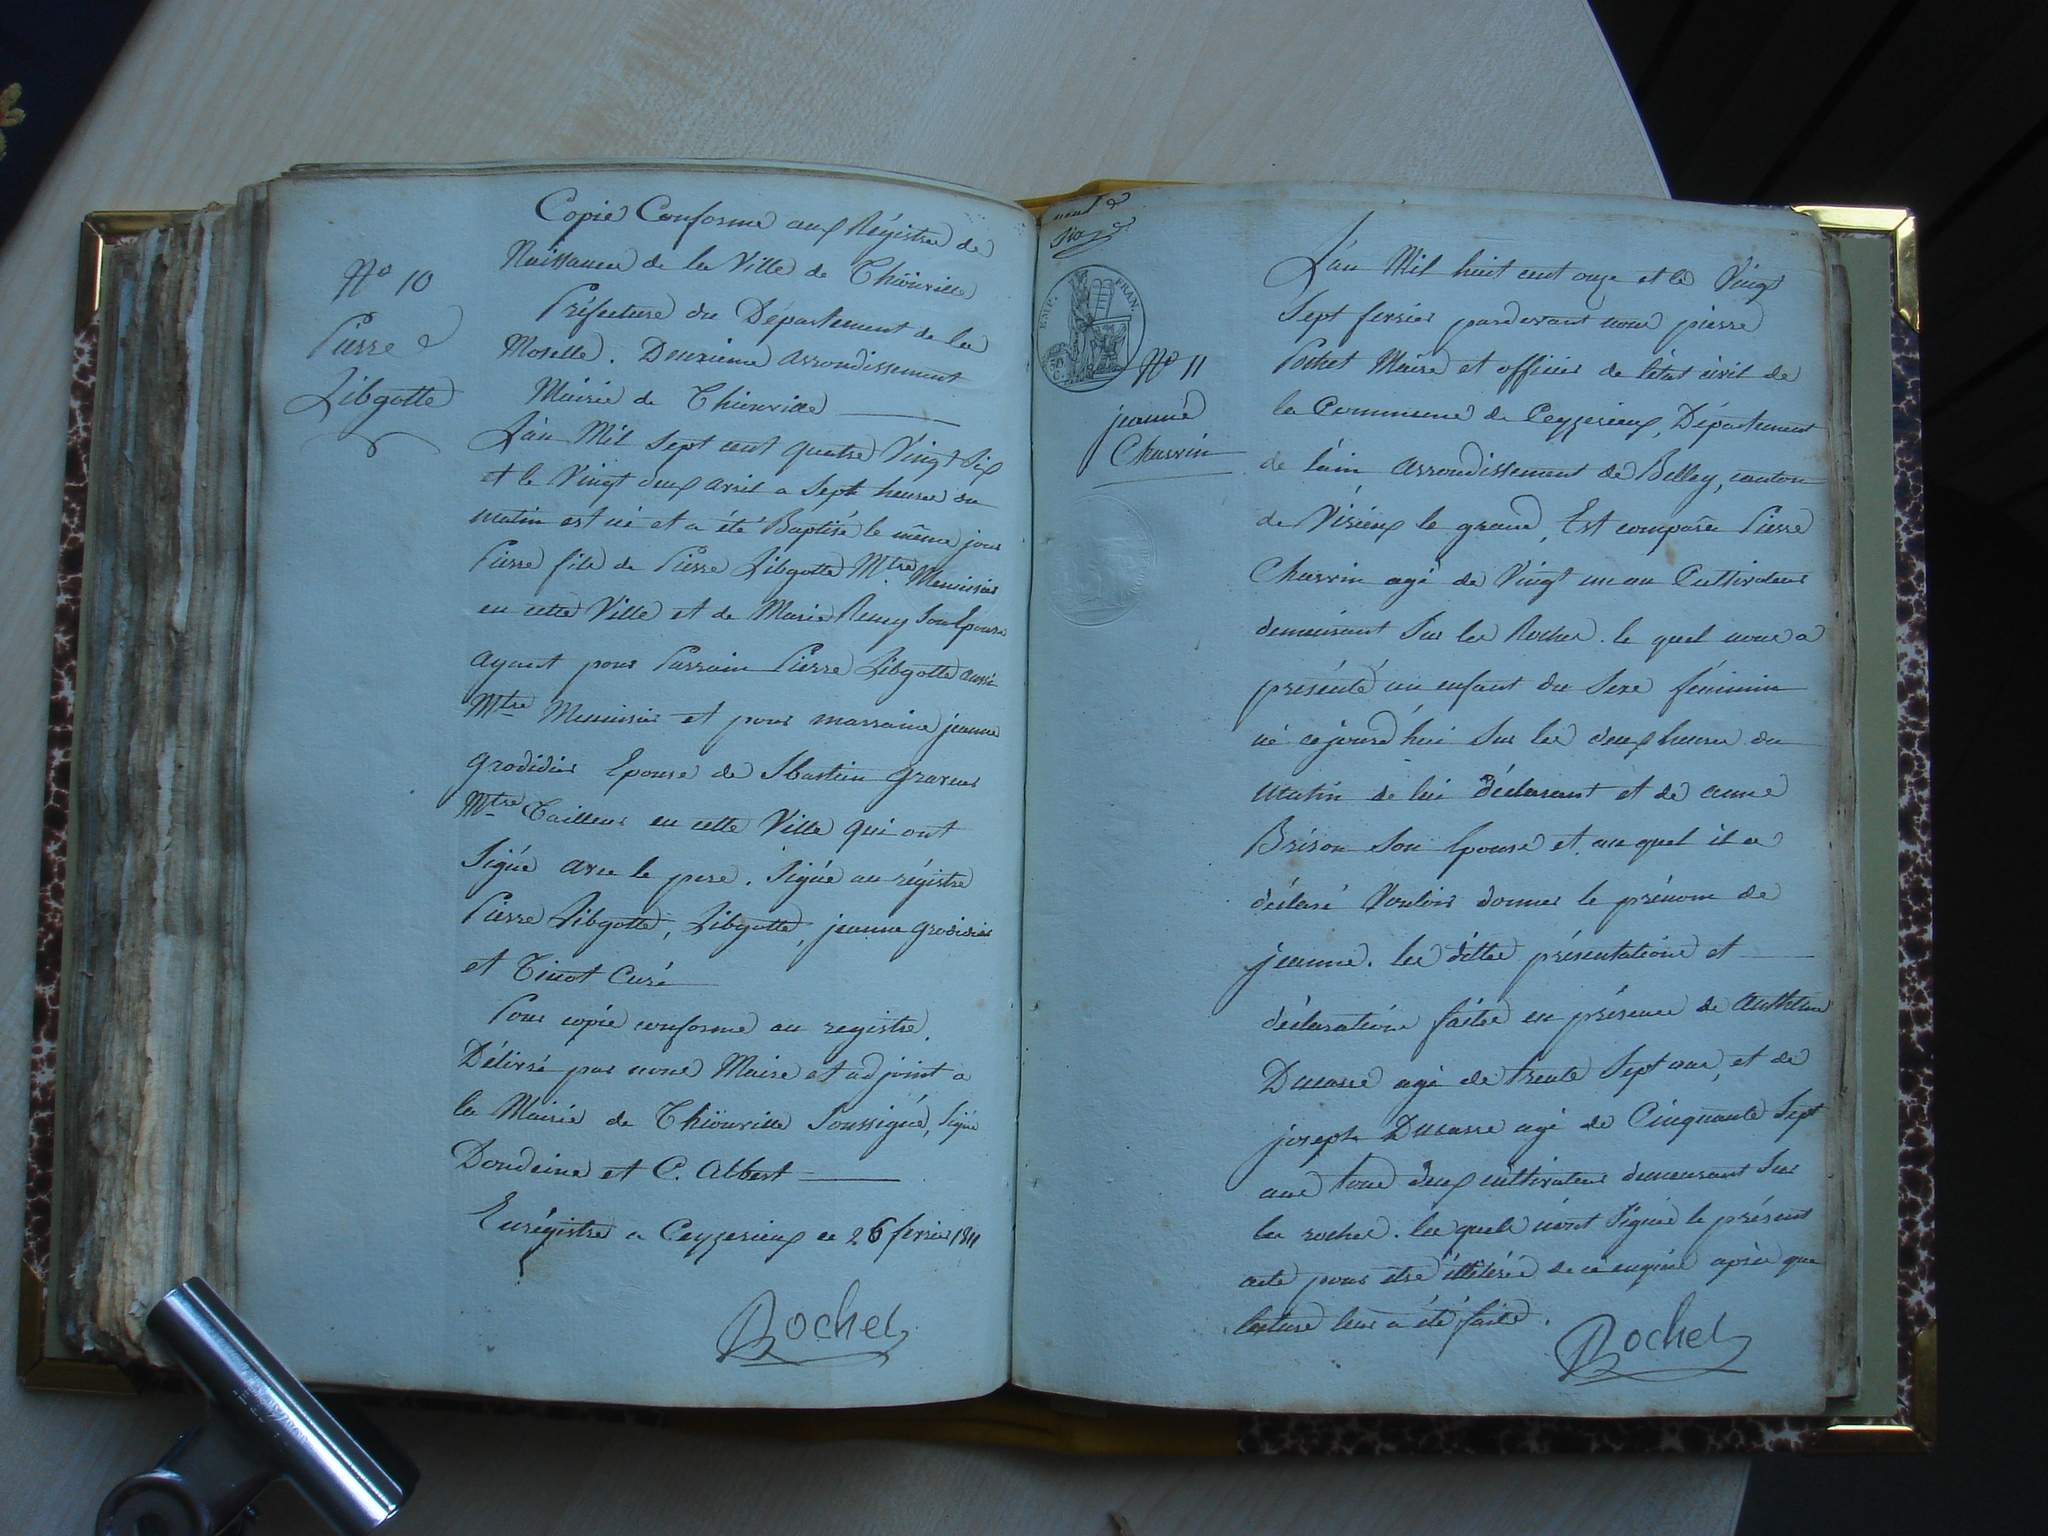 Copie Conforme aux Régistre de
Naissance de la Ville de Thiönville
Préfecture du Département de la
Moselle. Deuxieme arrondissement
Mairie de Thionville
N° 10
Pierre
Libgotte
L'an Mil sept cent quatre Vingt Six
et le Vingt deux avril a Sept heures du
matin est né et a été Baptisé le même jour
Pierre fils de Pierre Libgotte Mtre Menuisier
en cette Ville et de Marie Remy Son Epouse
ayant pour Parrain Pierre Libgotte aussi
Mtre Menuisier et pour marraine jeanne
grodidier Epouse de Sbastien graveur
Mtre Tailleur en cette Ville qui ont
Signé avec le pere. Signé au régistre
Pierre Libgotte, Libgotte, jeanne grodidier
et Tinot Curé
Pour copie conforme au registre.
Délivré par nous Maire et adjoint a
la Mairie de Thiönville Soussigné, Signé
Doudeine et C. Albert
Enrégistre a Ceyzerieux le 26 fevrier 1811
Rochet
EMP. FRAN.
N° 11
jeanne
Charvin
L'an Mil huit cent onze et le Vingt
Sept fevrier pardevant nous pierre
Rochet Maire et officier de l'état civil de
la Commune de Ceyzerieux, Département
de l'ain arrondissement de Belley, canton
de Virieux le grand, Est comparu Pierre
Charvin agé de Vingt un an Cultivateur
demeurant Sur la Rochee. le quel nous a
présenté un enfant du Sexe féminin
né cejourd'hui Sur les deux heures du
Matin de lui déclarant et de anne
Brison Son Epouse et au quel il a
déclaré Vouloir donner le prénom de
jeanne. les dittes présentations et
déclarations faites en présence de Anthelme
Ducarre agé de trente Sept ans, et de
joseph Ducarre agé de Cinquante Sept
ans tous deux cultivateurs demeurant Sur
la rochee. les quels n'ont Signés le présent
acte pour etre illitérés de ce enquis après que
lecture leur a été faite.
Rochet